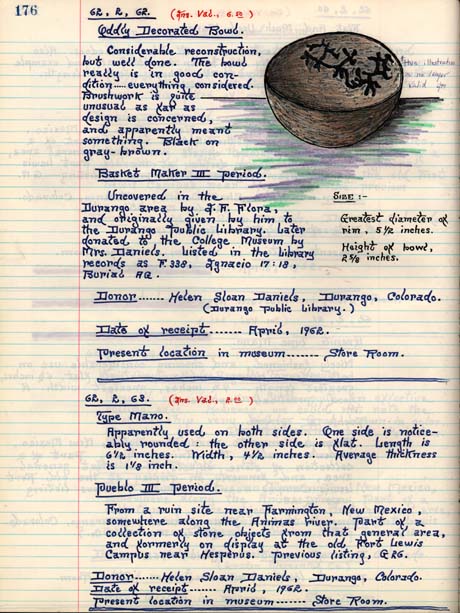 176
62, 2, 62. (Ins. Val., 6.00)
Oddly Decorated Bowl.
Considerable reconstruction,
but well done. The bowl
really is in good con-
dition.....everything considered.
Brushwork is quite
unusual as far as
design is concerned,
and apparently meant
something. Black on
gray-brown.
illustration
no longer
valid
Basket Maker III period.
Uncovered in the
Durango area by I. F. Flora,
and originally given by him to
the Durango Public Library. Later
donated to the College Museum by
Mrs. Daniels. Listed in the Library
records as F. 338, Ignacio 17:18,
Burial
SIZE :-
Greatest diameter of
rim, 5 1/2 inches.
Height of bowl,
2 5/8 inches.
Donor...... Helen Sloan Daniels, Durango, Colorado.
(Durango Public Library.)
Date of receipt....... April, 1962.
Present location in museum....... Store Room.
62, 2, 63. (Ins. Val., 2.00)
Type Mano.
Apparently used on both sides. One side is notice-
ably rounded: the other side is flat. Length is
6 1/2 inches. Width, 4 1/2 inches. Average thickness
is 1 1/8 inch.
Pueblo III Period.
From a ruin site near Farmington, New Mexico,
somewhere along the Animas river. Part of a
collection of stone objects from that general area,
and formerly on display at the old Fort Lewis
Campus near Hesperus. Previous listing,
Donor...... Helen Sloan Daniels, Durango, Colorado.
Date of receipt...... April, 1962.
Present location in museum....... Store Room.